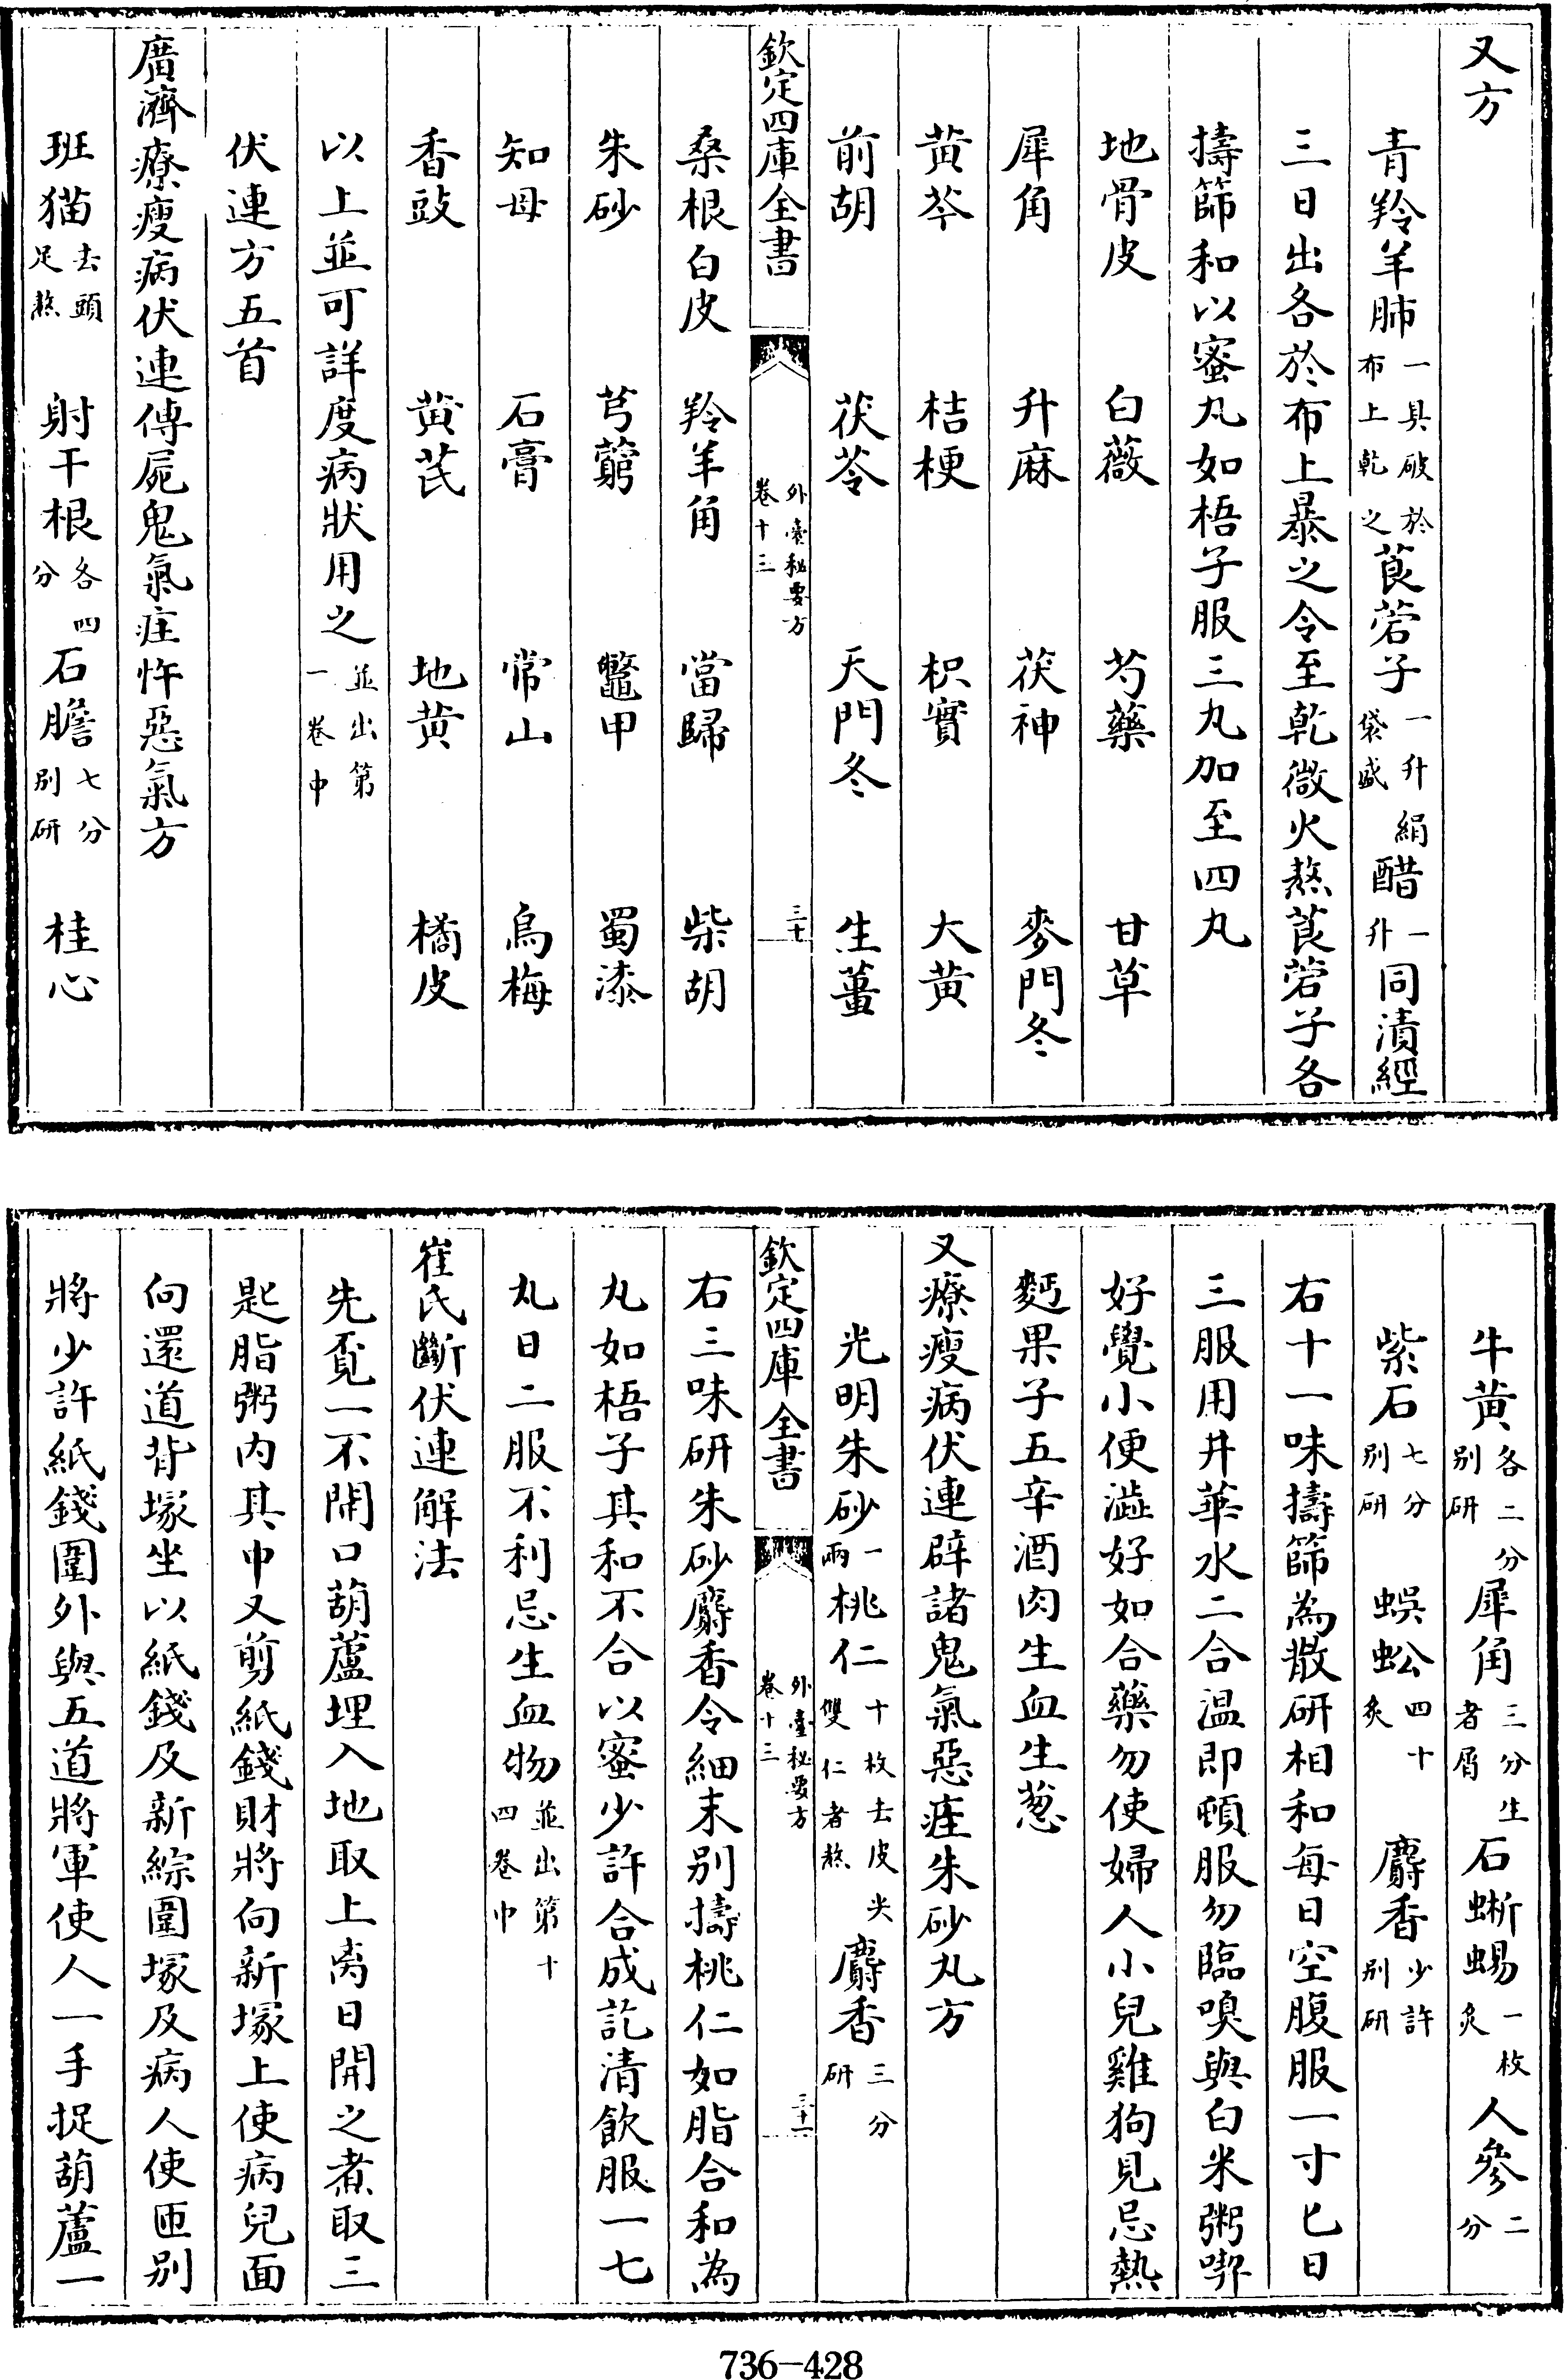 又方
青羚羊肺一具破於布上乾之莨菪子一升絹袋盛醋一升同漬經
三日出各於布上暴之令至乾微火熬莨菪子各
擣篩和以蜜丸如梧子服三丸加至四丸
地骨皮 白薇 芍藥 甘草
犀角 升麻 茯神 麥門冬
黄芩 桔梗 枳實 大黄
前胡 茯苓 天門冬 生薑
欽定四庫全書 外臺秘要方卷十三 三十
桑根白皮 羚羊角 當歸 柴胡
朱砂 芎藭 鼈甲 蜀漆
知母 石膏 常山 烏梅
香豉 黄芪 地黄 橘皮
以上並可詳度病狀用之並出第一卷中
伏連方五首
廣濟療瘦病伏連傳屍鬼氣疰忤惡氣方
班猫去頭足熬 射干根各四分 石膽七分别研 桂心
牛黄各二分别研 犀角三分生者屑 石蜥蜴一枚炙 人參二分
紫石七分别研 蜈蚣四十炙 麝香少許别研
右十一味擣篩為散研相和每日空腹服一寸匕日
三服用井華水二合温即頓服勿臨嗅與白米粥喫
好覺小便澁好如合藥勿使婦人小兒雞狗見忌熱
麪果子五辛酒肉生血生葱
又療瘦病伏連辟諸鬼氣惡疰朱砂丸方
光明朱砂一兩 桃仁十枚去皮尖雙仁者熬 麝香三分研
欽定四庫全書 外臺秘要方卷十三 三十一
右三味研朱砂麝香令細末别擣桃仁如脂合和為
丸如梧子其和不合以蜜少許合成訖清飲服一七
丸日二服不利忌生血物並出第十四卷中
崔氏斷伏連解法
先覔一不開口葫蘆埋入地取上离日開之煮取三
匙脂粥内其中又剪紙錢財將向新塚上使病兒面
向還道背塚坐以紙錢及新綜圍塚及病人使匝别
將少許紙錢圍外與五道將軍使人一手捉葫蘆一
736-428